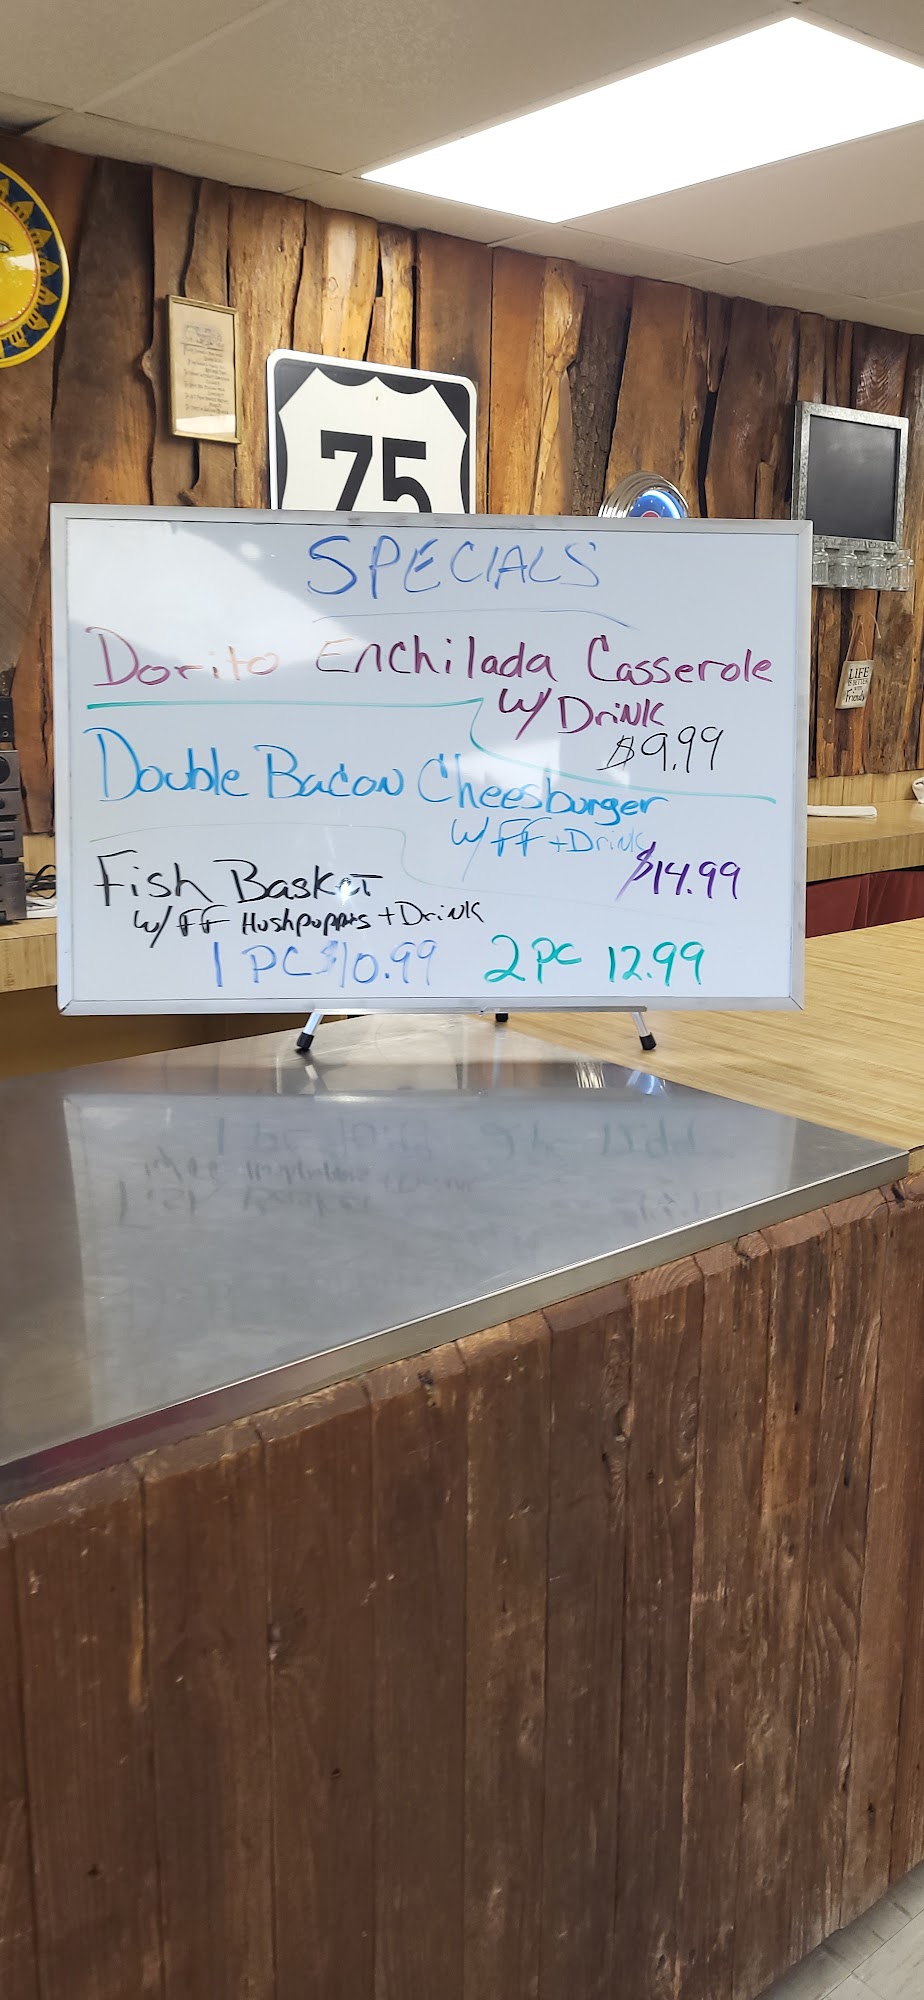 75
SPECIALS
Dorito Enchilada Casserole
w/ Drink
$9.99
Double Bacon Cheesburger
w/ FF + Drink
$14.99
Fish Basket
w/ FF Hushpuppies + Drink
1 PC $10.99 2 PC 12.99
LIFE
IS BETTER
with
friends